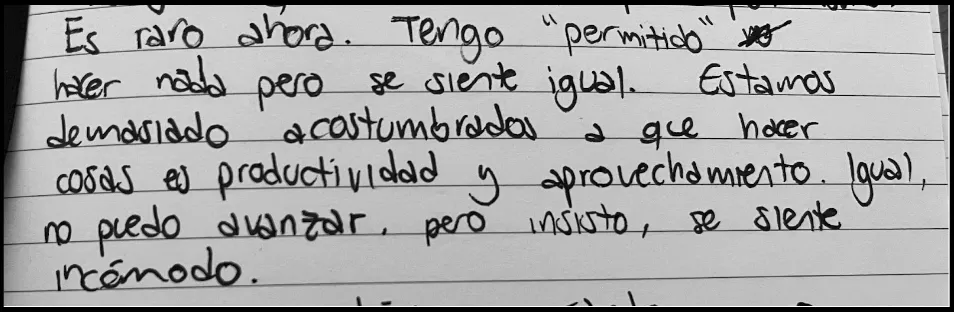 Es raro ahora. Tengo "permitido"
hacer nada pero se siente igual. Estamos
demasiado acostumbrados a que hacer
cosas es productividad y aprovechamiento. Igual,
no puedo avanzar, pero insisto, se siente
incómodo.